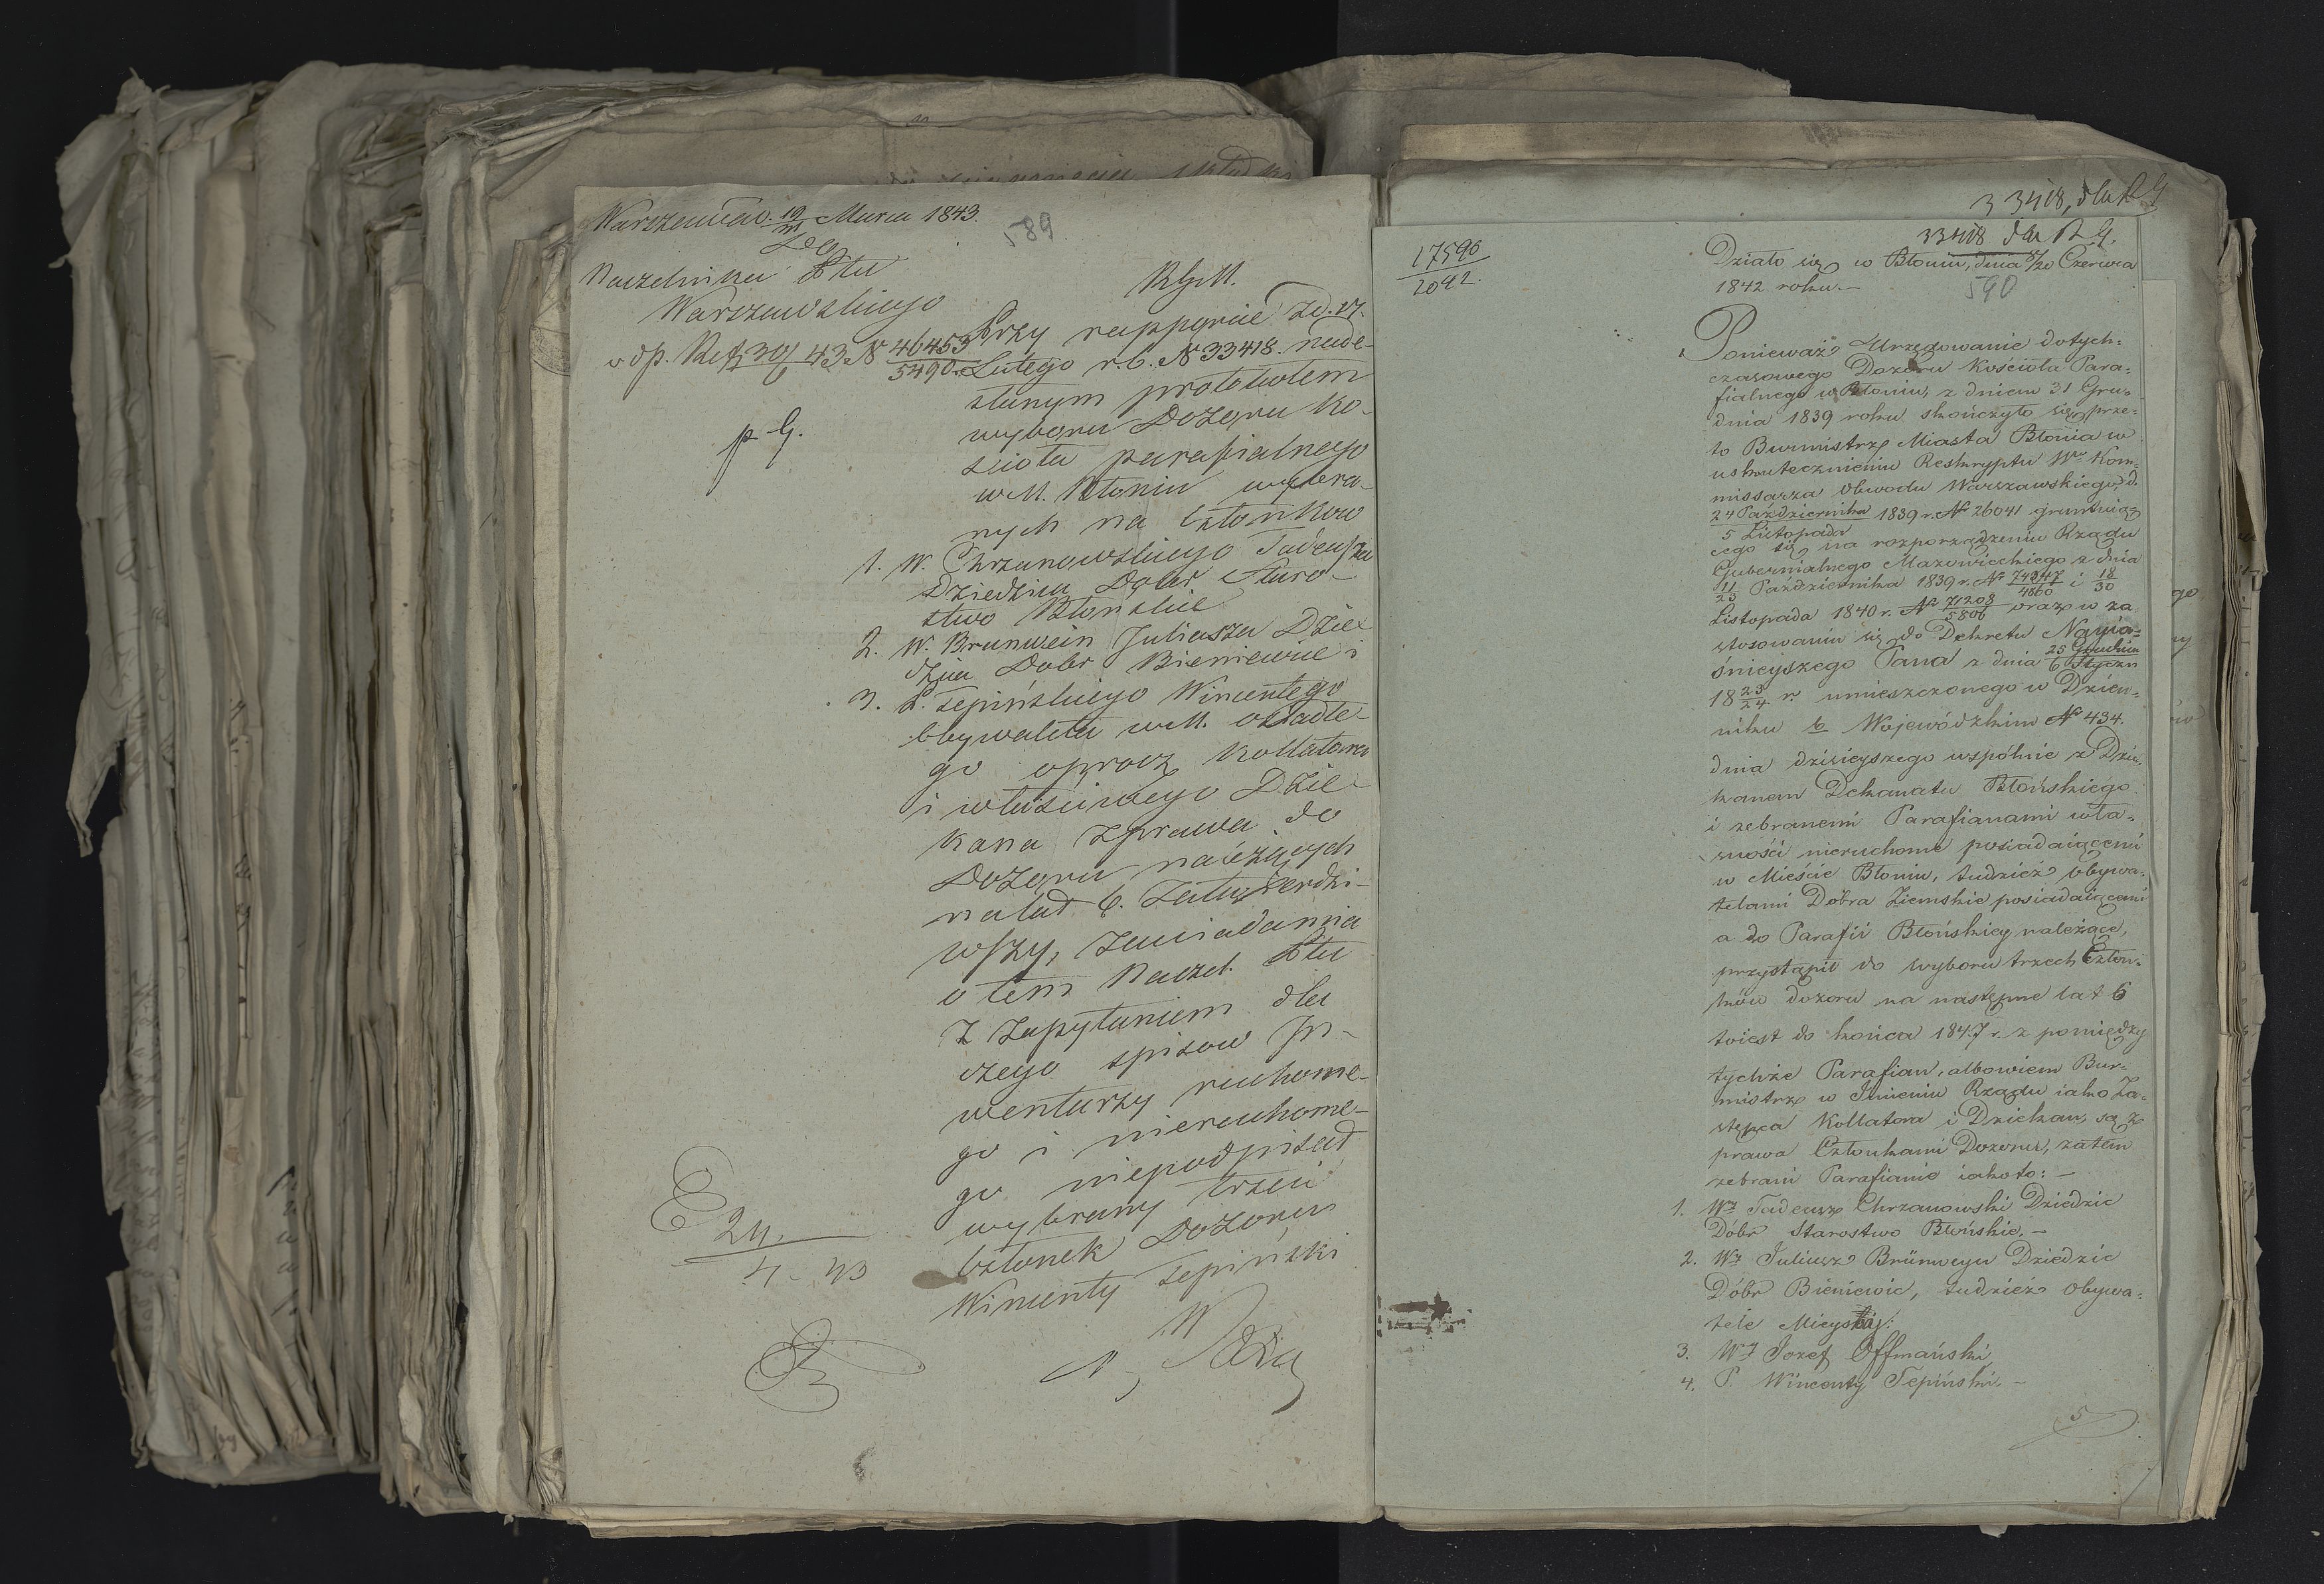 Warszawa d. 19 Marca 1843.
589
Naczelnika Ptu
Warszawskiego
RGM.
Przy rapporcie z d. 17.
46453
5490
Lutego r. b. N 33418. nade-
słanym protokołem
wyboru Dozoru Ko-
p. G.
scioła parafialnego
w M. Błoniu wybra-
nych na Członków
1. W. Chrzanowskiego Tadeusza
Dziedzica Dobr Staro-
stwo Błońskie
2. W. Brunwein Juliusza Dzie-
dzica Dobr Bieniewice i
3. P. Tepińskiego Wincentego
Obywatela w M. osiadłe-
go oprocz Kollatora
i właściwego Dzie-
kana z prawa do
Dozoru należących
na lat 6. Zatwierdzi-
wszy, zawiadamia
o tem Naczel. Ptu
z zapytaniem dla
czego spisow In-
wentarzy ruchome-
go i nieruchome-
go niepodpisał
wybrany trzeci
Członek Dozoru
Wincenty Tepiński
24.
4 - 43
33418, dla R G
17590
2092.
33418 dla R. G.
Działo się w Błoniu, dnia 8/20 Czerwca
1842 roku.—
590
Ponieważ Urzędowanie dotych=
czasowego Dozoru Kościoła Para=
fialnego w Błoniu, z dniem 31 Gru=
dnia 1839 roku skończyło się, prze=
to Burmistrz Miasta Błonia w
uskutecznieniu Reskryptu Wo Kom=
missarza Obwodu Warszawskiego, d.
24 Października 1839 r. No 26041 gruntuią=
5 Listopada
cego się na rozporządzeniu Rządu
Gubernialnego Mazowieckiego z dnia
11/23 Października 1839 r. No 74347/4660 i 18/30
Listopada 1840 r. No 71208/5806 oraz w za
stosowaniu się do Dekretu Nayia=
śnieyszego Pana z dnia 25 Grudnia/6 Styczn
18 23/24 r. umieszczonego w Dzien=
niku b Wojewódzkim No 434.
dnia dzisieyszego wspólnie z Dzie=
kanem Dekanatu Błońskiego.
i zebranemi Parafianami wła=
sności nieruchome posiadaiącemi
w Mieście Błoniu, tudzież Obywa=
telami Dobra Ziemskie posiadaiącemi
a do Parafii Błońskiey należące,
przystąpił do wyboru trzech Człon=
ków dozoru na następne lat 6
toiest do końca 1847 r. z pomiędzy
tychże Parafian, albowiem Bur=
mistrz w Imieniu Rządu iako Za=
stępca Kollatora i Dziekan, są z
prawa Członkami Dozoru, zatem
zebrani Parafianie iakoto: —
1. Wy Tadeusz Chrzanowski Dziedzic
Dóbr Starostwo Błońskie. —
2. Wy Juliusz Brünweyn Dziedzic
Dóbr Bieniewic, tudzież Obywa=
tele Mieyscy:
3. Wy Jozef Offmański
4. P. Wincenty Tepiński. —